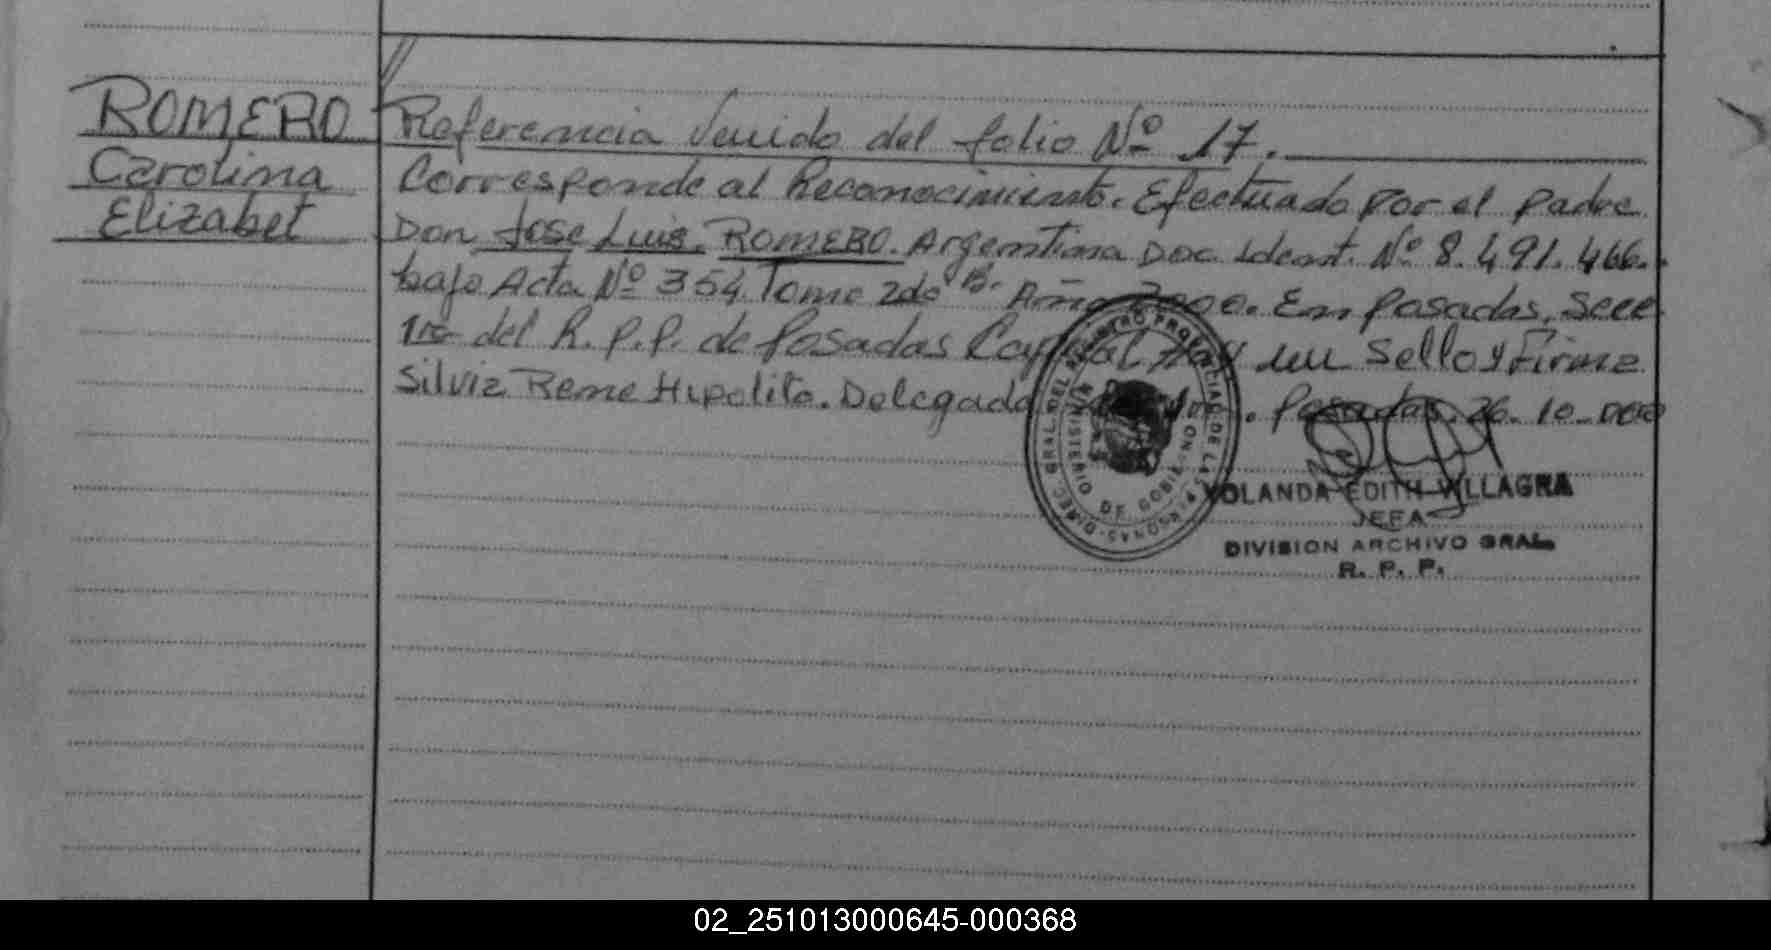 ROMERO
Carolina
Elizabet
Referencia Venido del folio Nº 17.
Corresponde al Reconocimiento. Efectuado por el padre
Don Jose Luis. ROMERO. Argentina Doc. Ident. Nº 8.491.466.
bajo Acta Nº 354 Tomo 2do B. Año 2000. En Posadas, Secc
1ra del R.P.P. de Posadas Capital Hay un Sello y Firma
Silvia Rene Hipolito. Delegada . Posadas. 26-10-000
DIREC. GRAL. DEL REGISTRO PROVINCIAL DE LAS PERSONAS
MINISTERIO DE GOBIERNO
YOLANDA EDITH VILLAGRA
JEFA
DIVISION ARCHIVO GRAL.
R. P. P.
02_251013000645-000368